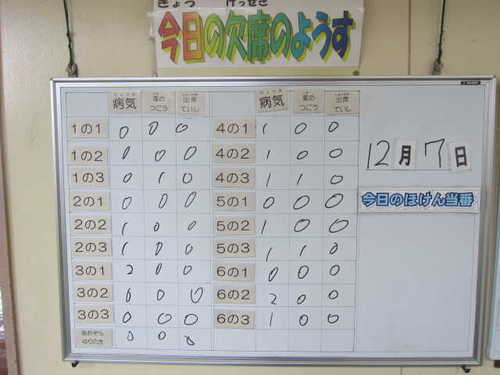 きょう けっせき
今日の欠席のようす
病気 家のつごう 出席ていし 病気 家のつごう 出席ていし
1の1 0 0 0 4の1 1 0 0
1の2 0 0 0 4の2 1 0 0
1の3 0 1 0 4の3 1 1 0
2の1 0 0 0 5の1 0 0 0
2の2 1 0 0 5の2 1 0 0
2の3 1 0 0 5の3 1 1 0
3の1 2 0 0 6の1 0 0 0
3の2 0 0 0 6の2 2 0 0
3の3 0 0 0 6の3 1 0 0
0 0 0
12月7日
今日のほけん当番